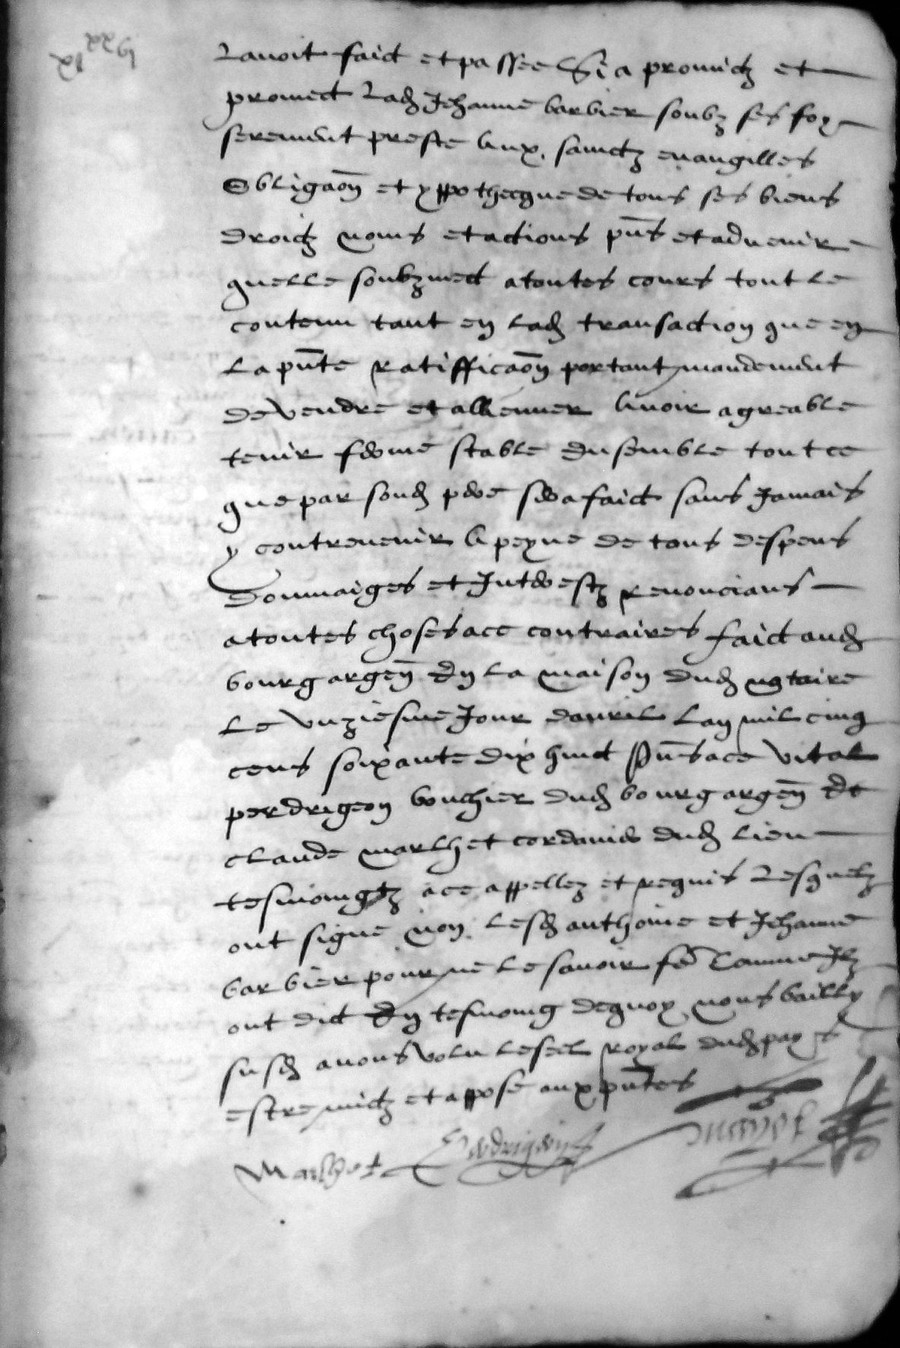 Lavoit faict et passee Et a promictz et
promect lad Jehanne barbier soubz ses foy
serement preste aux sainctz evangilles
Obligaon et yppothecque de tous ses biens
droictz noms et actions pns et advenir
quelle soubzmect a toutes cours tout le
contenu tant en lad transaction que en
la pnte ratifficaon portant mandement
de vendre et allienner avoir agreable
tenir ferme stable ensemble tout ce
que par soud pere sera faict sans Jamais
y contrevenir a peyne de tous despens
dommaiges et Interestz renoncians
a toutes choses a ce contraires faict aud
bourg argen En la maison dud notaire
le unziesme Jour davril lan mil cinq
cens soixante dix huict Pns a ce vital
perdrigeon bouchier dud bourg argen Et
claude marlhet cordanier dud lieu
tesmoingtz a ce appellez et requis Lesquelz
ont signe non lesd anthoine et Jehanne
barbier pour ne le savoir fe Comme Ilz
ont dict En tesmoing dequoy nous bailly
susd avons volu le seel royal dud pays
estre mictz et appose aux pntes
Marlhet Perdrigeon